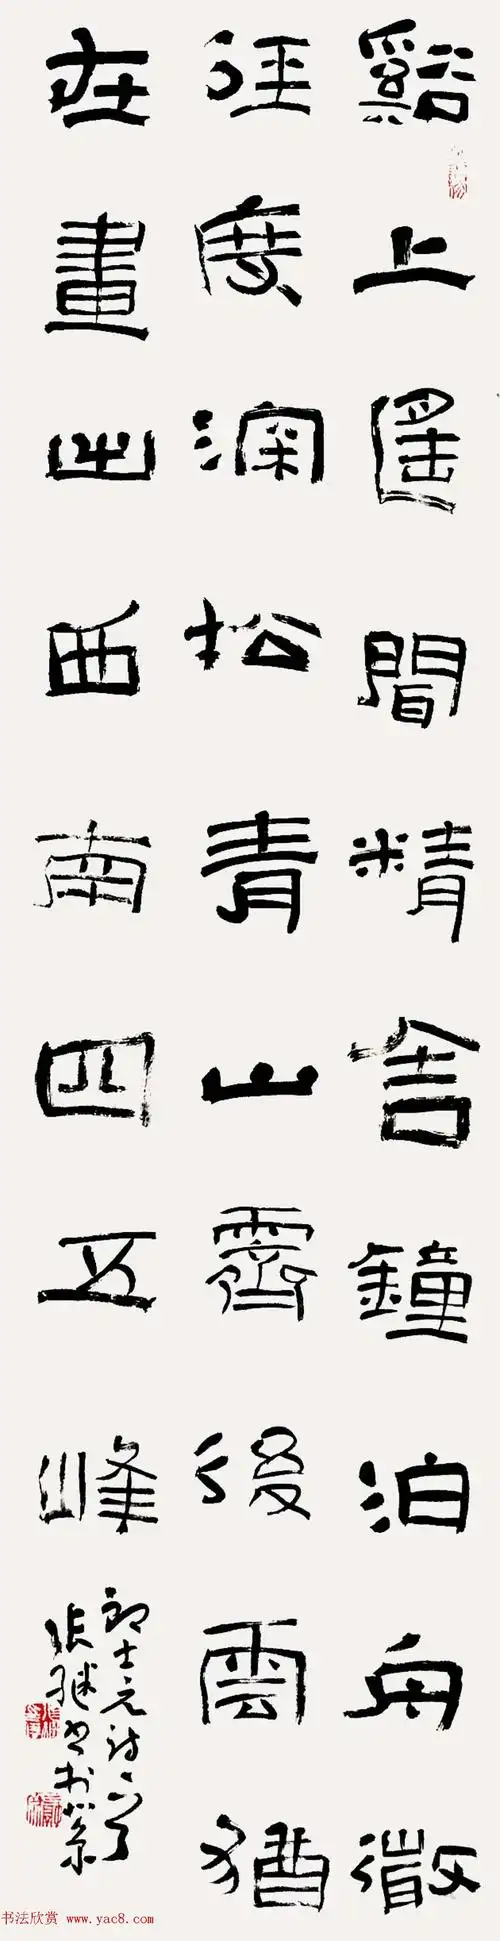 谿上遙聞精舍鐘泊舟微
徑度深松青山霽後雲猶
在畫出西南四五峰
郎士元诗
张继书於京
书法欣赏 www.yac8.com